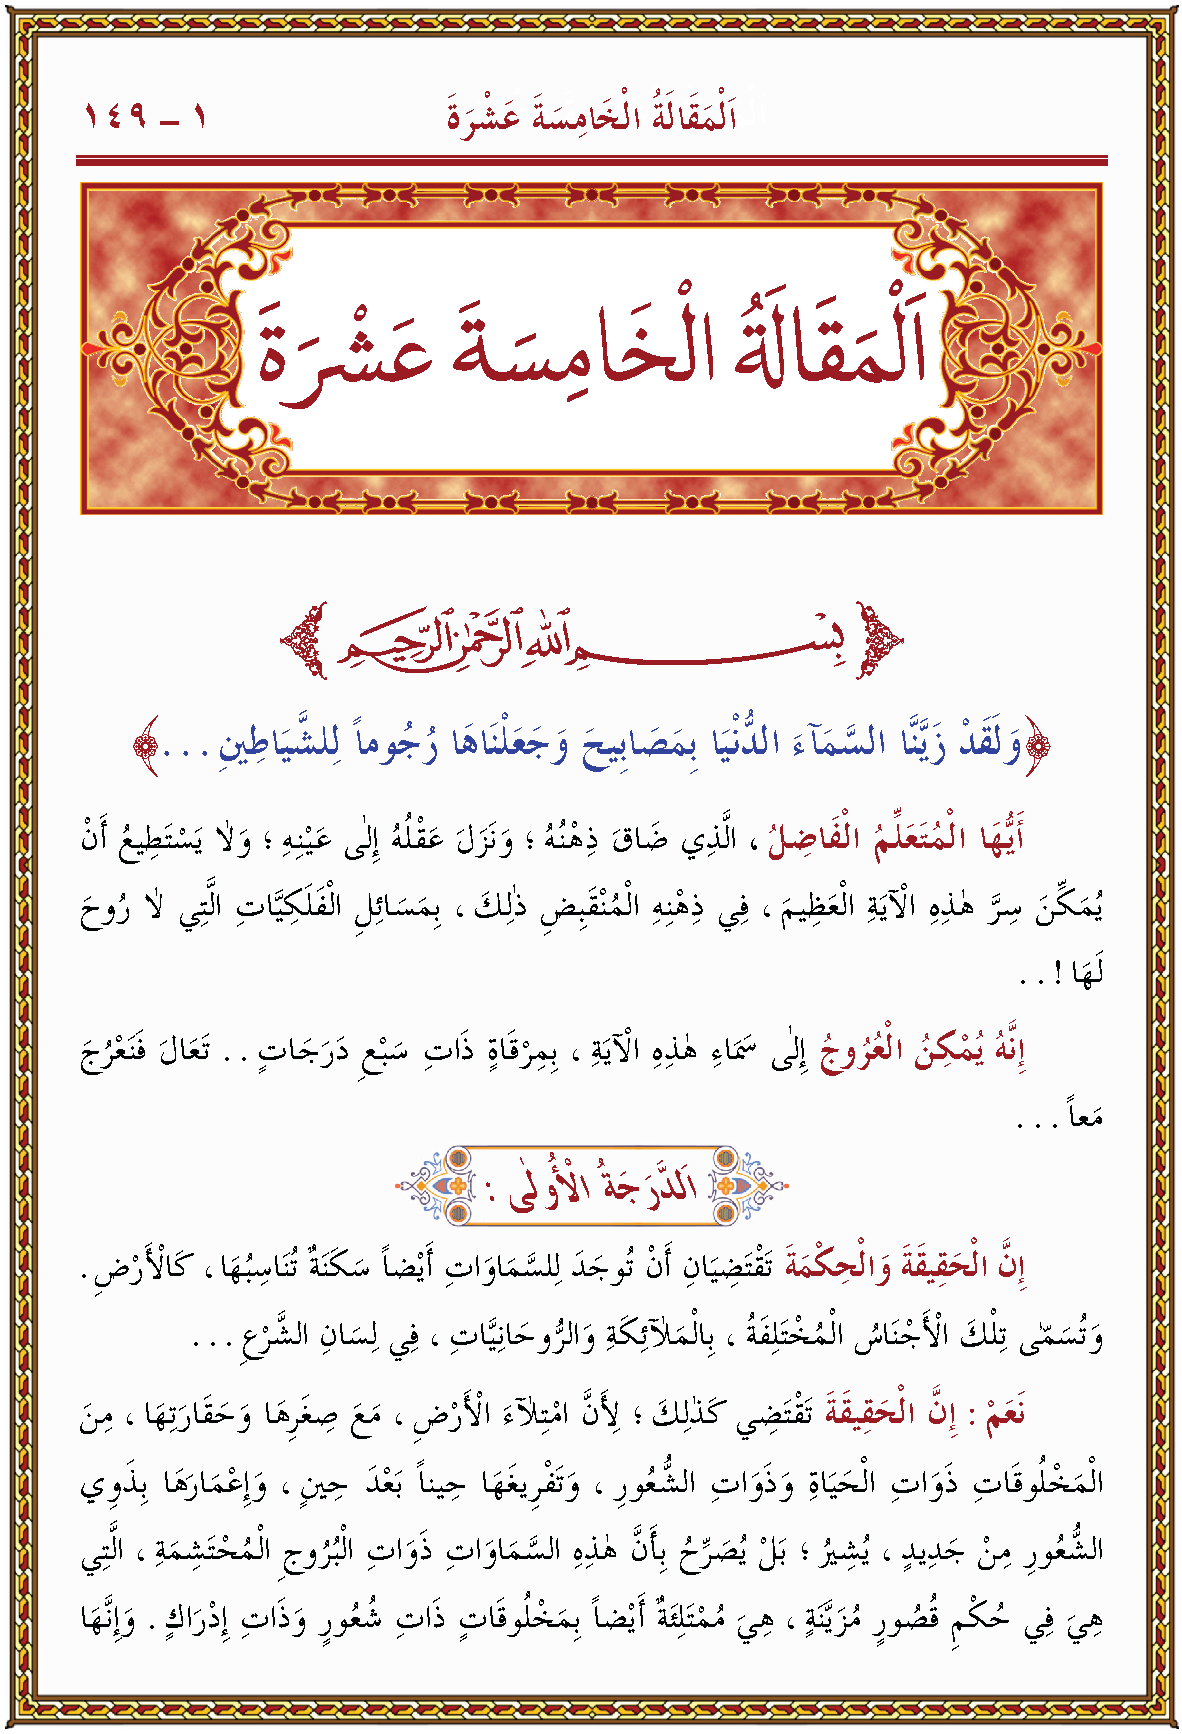 اَلْمَقَالَةُ الْخَامِسَةَ عَشْرَةَ
١ – ١٤٩
اَلْمَقَالَةُ الْخَامِسَةَ عَشْرَةَ
بِسْمِ ٱللهِ ٱلرَّحْمٰنِ ٱلرَّحِيمِ
﴿وَلَقَدْ زَيَّنَّا السَّمَآءَ الدُّنْيَا بِمَصَابِيحَ وَجَعَلْنَاهَا رُجُوماً لِلشَّيَاطِينِ . . .﴾
أَيُّهَا الْمُتَعَلِّمُ الْفَاضِلُ ، الَّذِي ضَاقَ ذِهْنُهُ ؛ وَنَزَلَ عَقْلُهُ إِلٰى عَيْنِهِ ؛ وَلاٰ يَسْتَطِيعُ أَنْ
يُمَكِّنَ سِرَّ هٰذِهِ الْآيَةِ الْعَظِيمَ ، فِي ذِهْنِهِ الْمُنْقَبِضِ ذٰلِكَ ، بِمَسَائِلِ الْفَلَكِيَّاتِ الَّتِي لاٰ رُوحَ
لَهَا ! . .
إِنَّهُ يُمْكِنُ الْعُرُوجُ إِلٰى سَمَاءِ هٰذِهِ الْآيَةِ ، بِمِرْقَاةٍ ذَاتِ سَبْعِ دَرَجَاتٍ . . تَعَالَ فَنَعْرُجَ
مَعاً . . .
اَلدَّرَجَةُ الْأُولٰى :
إِنَّ الْحَقِيقَةَ وَالْحِكْمَةَ تَقْتَضِيَانِ أَنْ تُوجَدَ لِلسَّمَاوَاتِ أَيْضاً سَكَنَةٌ تُنَاسِبُهَا ، كَالْأَرْضِ .
وَتُسَمّٰى تِلْكَ الْأَجْنَاسُ الْمُخْتَلِفَةُ ، بِالْمَلاٰۤئِكَةِ وَالرُّوحَانِيَّاتِ ، فِي لِسَانِ الشَّرْعِ . . .
نَعَمْ : إِنَّ الْحَقِيقَةَ تَقْتَضِي كَذٰلِكَ ؛ لِأَنَّ امْتِلاٰۤءَ الْأَرْضِ ، مَعَ صِغَرِهَا وَحَقَارَتِهَا ، مِنَ
الْمَخْلُوقَاتِ ذَوَاتِ الْحَيَاةِ وَذَوَاتِ الشُّعُورِ ، وَتَفْرِيغَهَا حِيناً بَعْدَ حِينٍ ، وَإِعْمَارَهَا بِذَوِي
الشُّعُورِ مِنْ جَدِيدٍ ، يُشِيرُ ؛ بَلْ يُصَرِّحُ بِأَنَّ هٰذِهِ السَّمَاوَاتِ ذَوَاتِ الْبُرُوجِ الْمُحْتَشِمَةِ ، الَّتِي
هِيَ فِي حُكْمِ قُصُورٍ مُزَيَّنَةٍ ، هِيَ مُمْتَلِئَةٌ أَيْضاً بِمَخْلُوقَاتٍ ذَاتِ شُعُورٍ وَذَاتِ إِدْرَاكٍ . وَإِنَّهَا